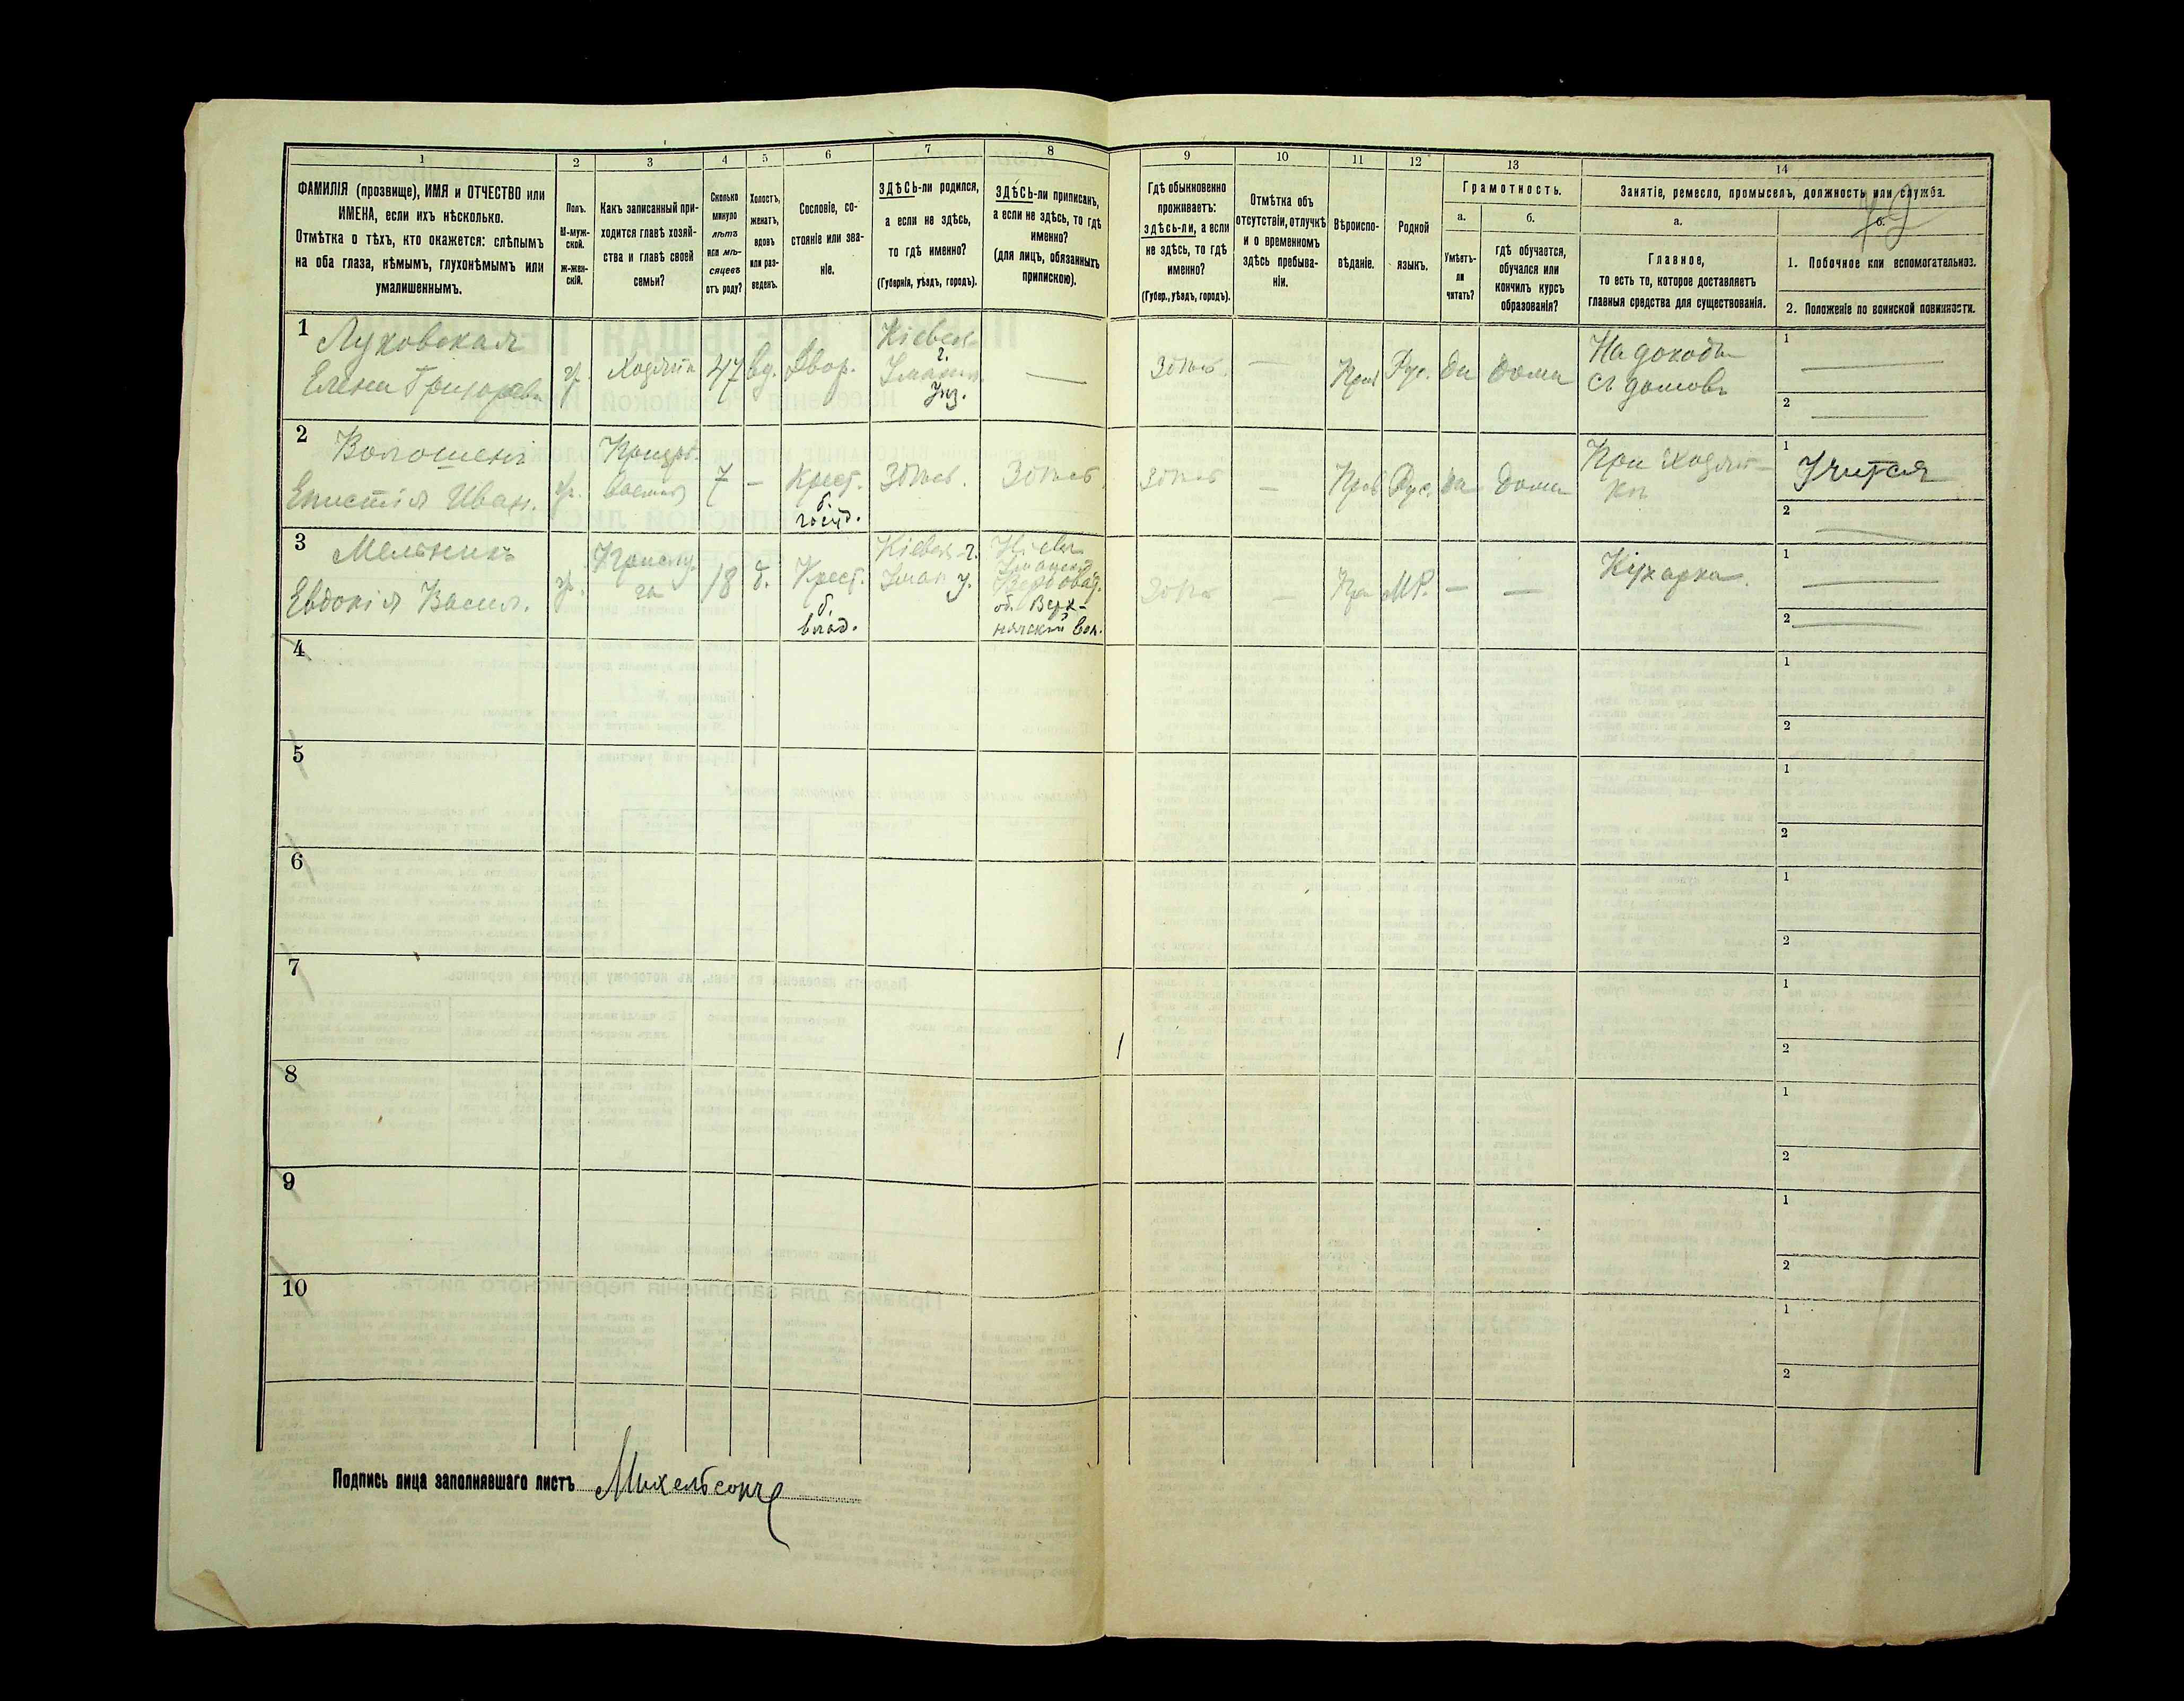 1 2 3 4 5 6 7 8 9 10 11 12 13 14
ФАМИЛІЯ (прозвище), ИМЯ и ОТЧЕСТВО или
ИМЕНА, если ихъ нѣсколько.
Отмѣтка о тѣхъ, кто окажется: слѣпымъ
на оба глаза, нѣмымъ, глухонѣмымъ или
умалишеннымъ.
Полъ.
М-муж-
ской.
ж-жен-
скій.
Какъ записанный при-
ходится главѣ хозяй-
ства и главѣ своей
семьи?
Сколько
минуло
лѣтъ
или мѣ-
сяцевъ
отъ роду?
Холостъ,
женатъ,
вдовъ
или раз-
веденъ.
Сословіе, со-
стояніе или зва-
ніе.
ЗДѢСЬ-ли родился,
а если не здѣсь,
то гдѣ именно?
(Губернія, уѣздъ, городъ).
ЗДѢСЬ-ли приписанъ,
а если не здѣсь, то гдѣ
именно?
(для лицъ, обязанныхъ
припискою).
Гдѣ обыкновенно
проживаетъ:
здѣсь-ли, а если
не здѣсь, то гдѣ
именно?
(Губер., уѣздъ, городъ).
Отмѣтка объ
отсутствіи, отлучкѣ
и о временномъ
здѣсь пребыва-
ніи.
Вѣроиспо-
вѣданіе.
Родной
языкъ.
Грамотность.
а.
Умѣетъ-
ли
читать?
б.
гдѣ обучается,
обучался или
кончилъ курсъ
образованія?
Занятіе, ремесло, промыселъ, должность или служба.
а.
Главное,
то есть то, которое доставляетъ
главныя средства для существованія.
б.
1. Побочное или вспомогательное.
2. Положеніе по воинской повинности.
1 Луковская
Елена Григорьев.
ж.
Хозяйка
47
вд.
Двор.
Кіевск.
г.
Уманск.
—
Здѣсь.
—
Прав
Рус.
да
дома
На доходы
съ домовъ
1 —
2 —
2
Епистія Иван.
ж.
7
—
Крест.
б.
госуд.
Здѣсь.
Здѣсь.
Здѣсь
—
Прав
Рус.
да
дома
При хозяй-
кѣ
1 Учится
2 —
3 Мельникъ
Евдокія Васил.
ж.
Прислу-
га
18
д.
Крест.
б.
влад.
Кіевск. г.
Уман. у.
Кіевск.
Уманск.
об. Верх-
нячской вол.
Здѣсь
—
Пр
М.Р.
—
—
Кухарка.
1 —
2 —
4 1
2
5 1
2
6 1
2
7 1
2
8 1
2
9 1
2
10 1
2
Подпись лица заполнявшаго листъ Михельсонъ